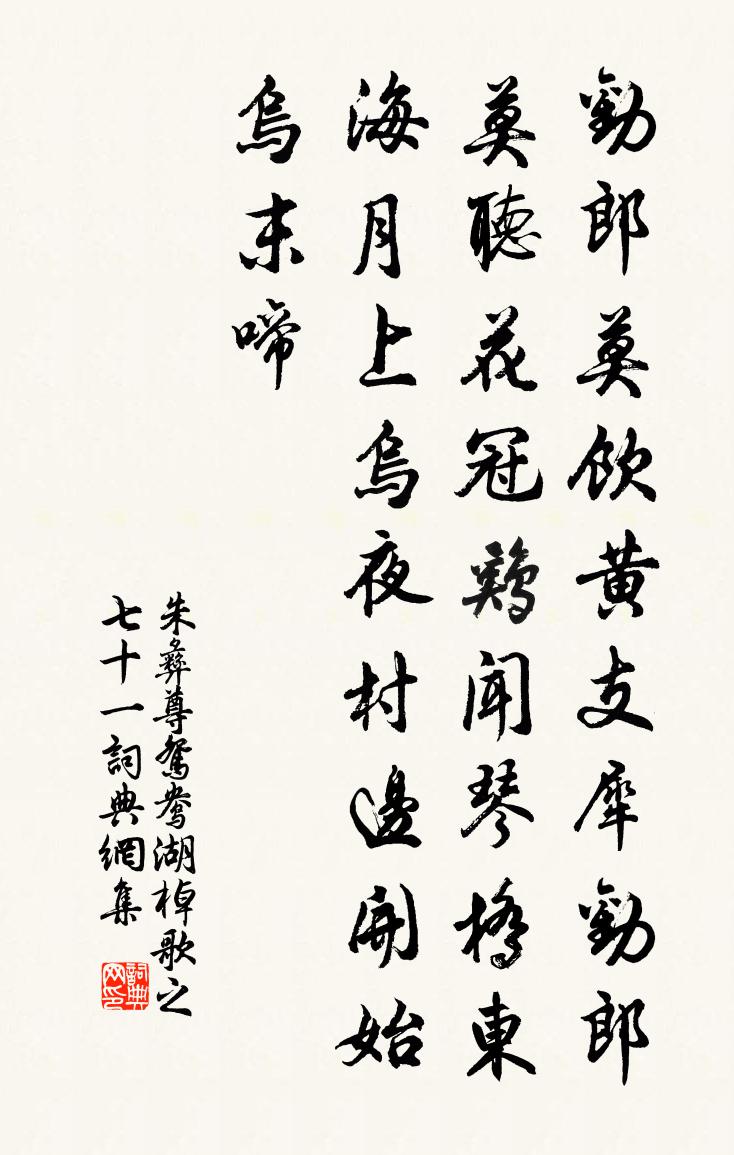 勸郎莫飲黃支犀勸郎
莫聽花冠鷄聞琴橋東
海月上烏夜村邊開始
烏未啼
朱彝尊鴛鴦湖棹歌之
七十一詞典網集
詞典网印